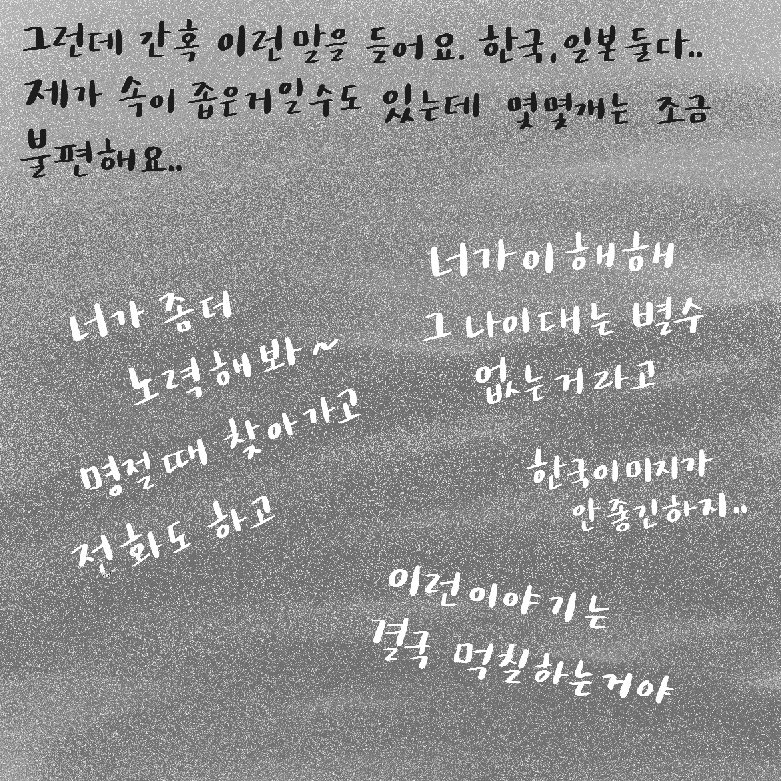 그런데 간혹 이런말을 들어요. 한국,일본 둘다..
제가 속이 좁은거일수도 있는데 몇몇개는 조금
불편해요..
너가이해해
그나이대는 별수
없는거라고
너가 좀더
노력해봐~
명절때 찾아가고
전화도 하고
한국이미지가
안좋긴하지..
이런이야기는
결국 먹칠하는거야